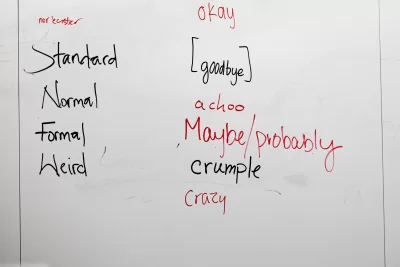 okay
Standard
[goodbye]
Normal
achoo
Formal
Maybe/probably
Weird
crumple
Crazy